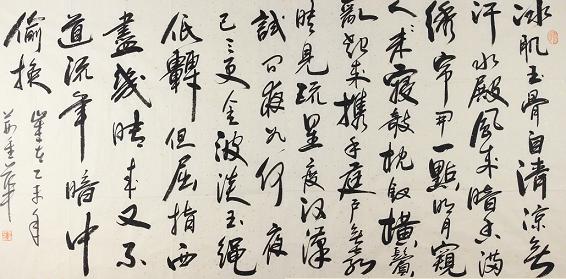 冰肌玉骨自清涼無
汗水殿風來暗香滿
繡帘開一點明月窺
人人未寢敧枕釵橫鬢
亂起來攜手庭戶無聲
時見疏星度河漢
試問夜如何夜
已三更金波淡玉繩
低轉但屈指西
幾時來又不
道流年暗中
偷換
歲在乙未年